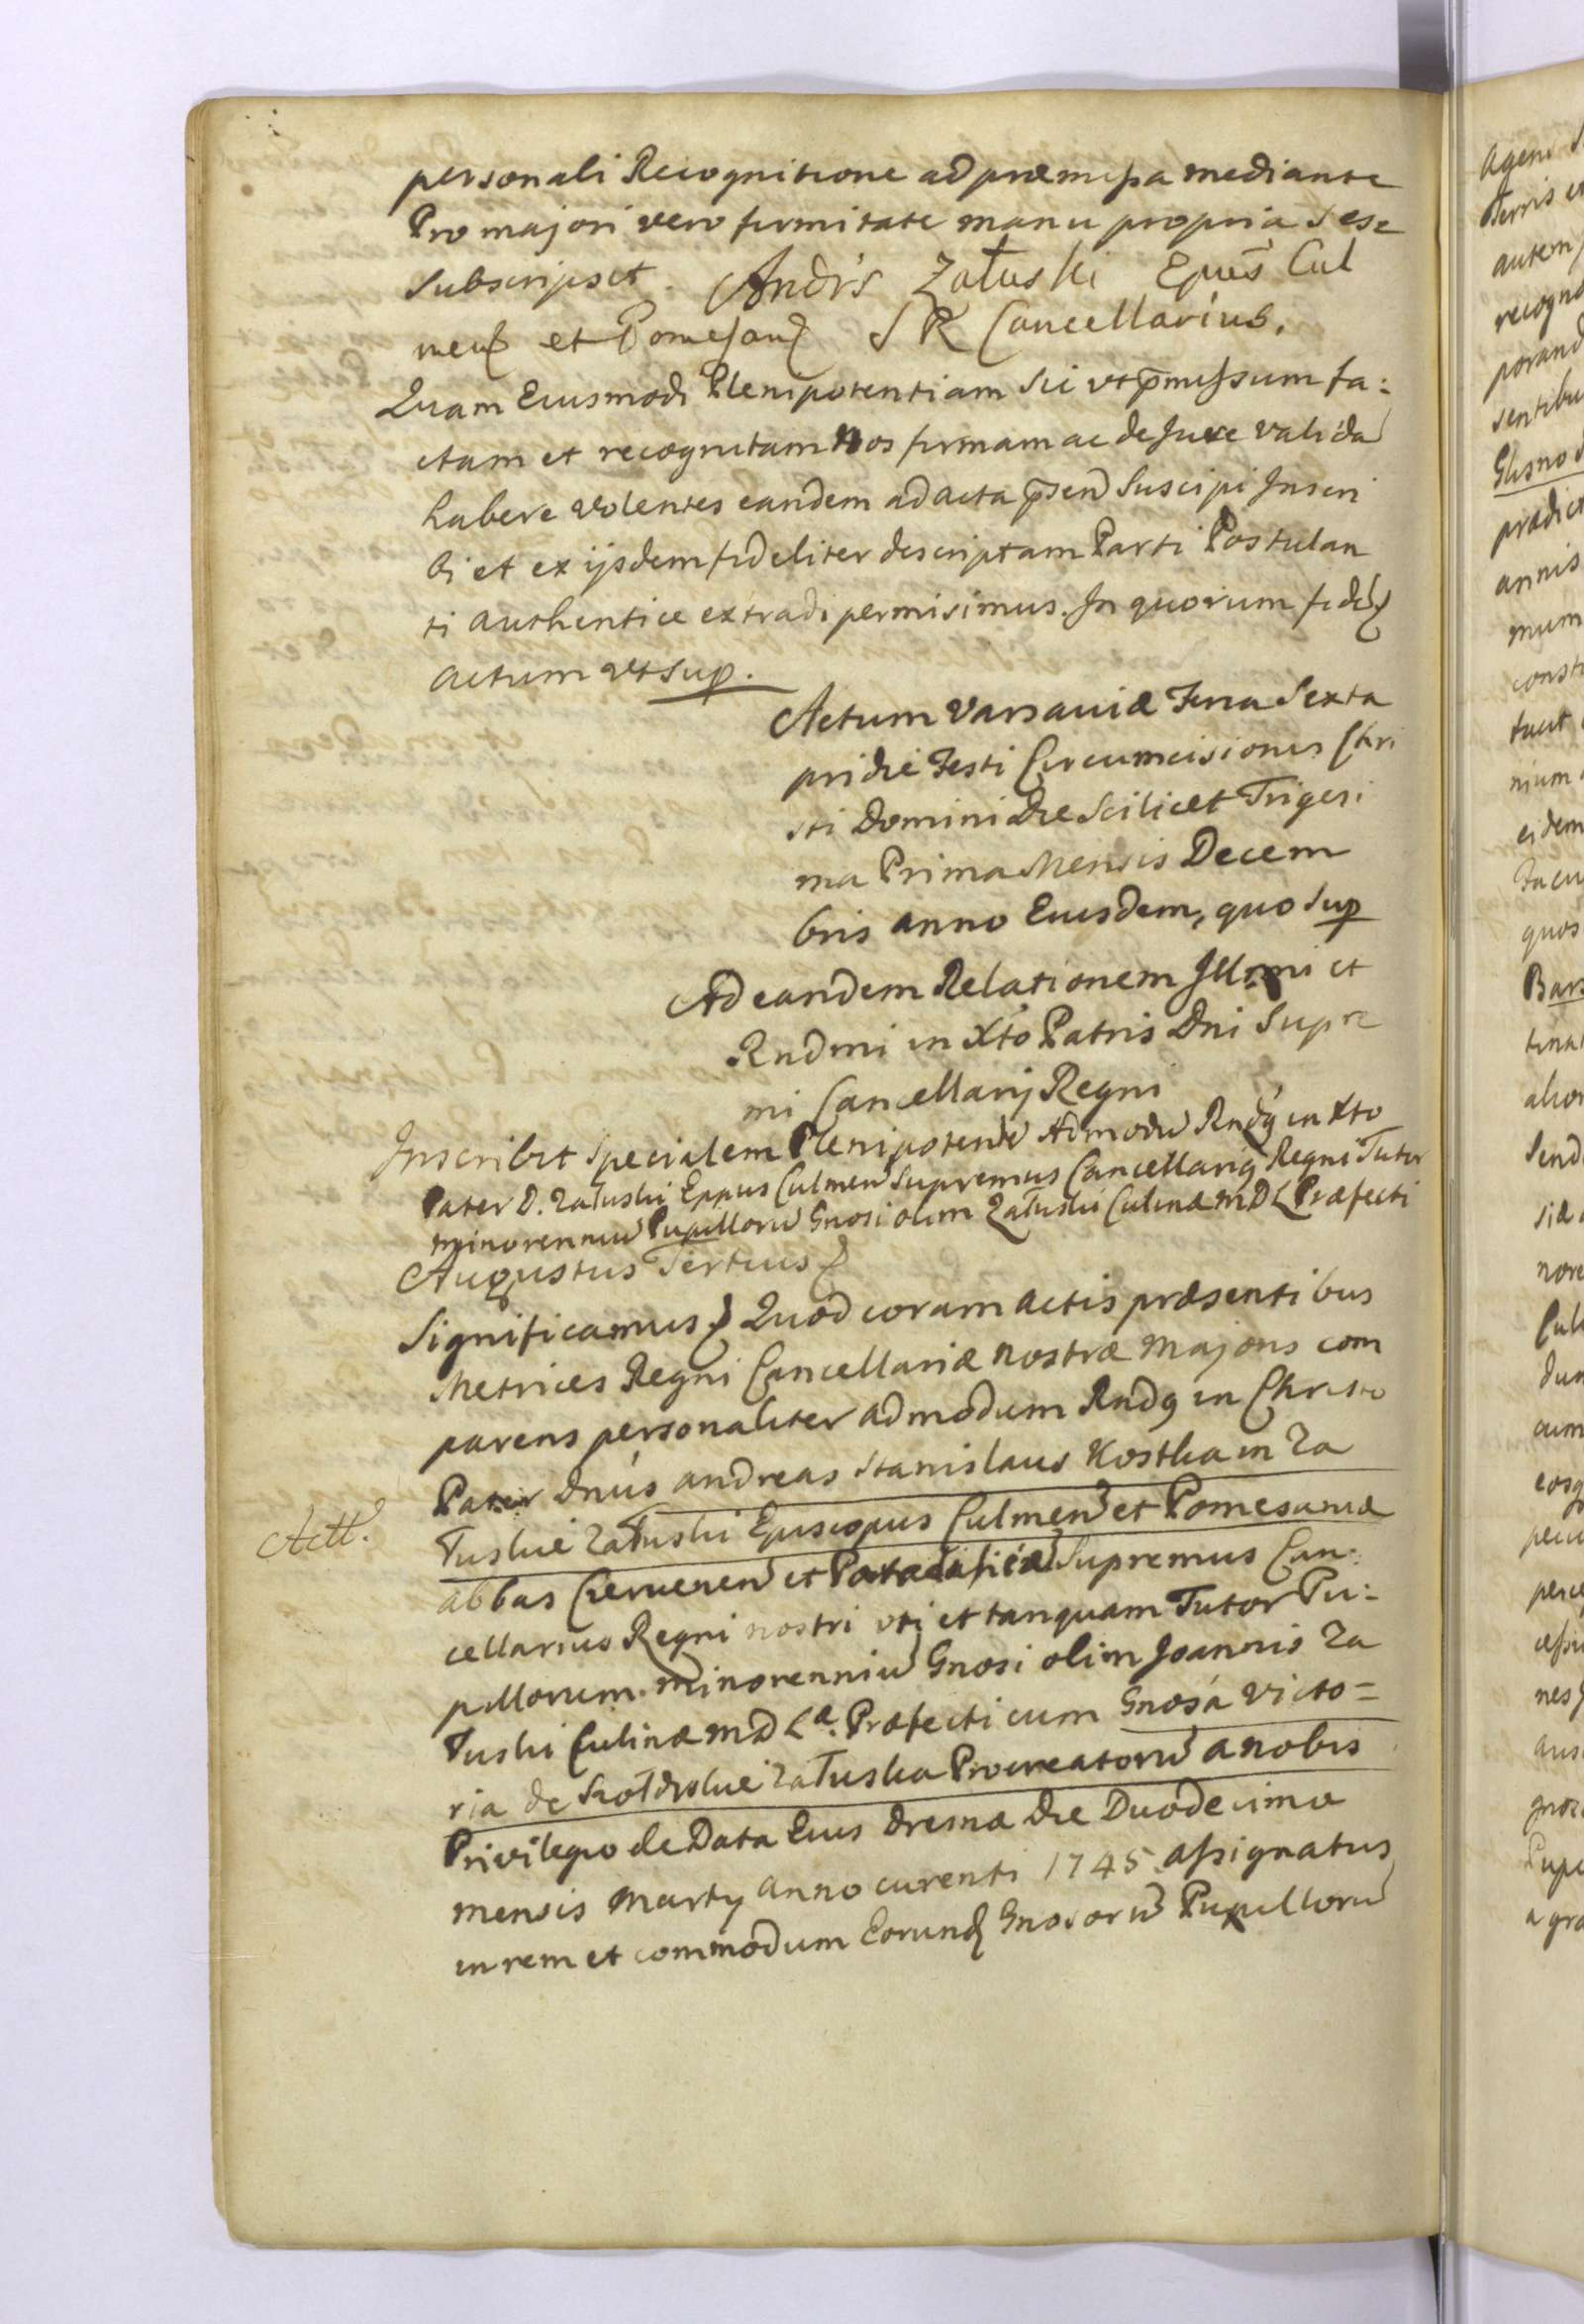 personali Recognitione ad præmissa mediante
Pro majori vero firmitate manu propria sese
subscripsit. Andrs Załuski Epus̄ Cul
mens et Pomesan S R Cancellarius.
Quam Eiusmodi Plenipotentiam sic vt p̄missum fa:
ctam et recognitam Nos firmam ac de Jure valida
habere volentes eandem ad acta p̄sen suscipi Inscri
bi et ex ijsdem fideliter descriptam Parti Postulan
ti authentice extradi permisimus. In quorum fidē
actum vt sup.
Actum Varsaviæ Feria Sexta
pridie Festi Circumcisionis Chri
sti Domini Die Scilicet Trigesi
ma Prima Mensis Decem
bris anno Eiusdem, quo sup
Ad eandem Relationem Illmi et
Rndmi in Xto Patris Dni Supre
mi Cancellarij Regni
Inscribit specialem Plenipoten Admodu Rndy in Xto
Pater D. Załuski Eppus Culmen Supremus Cancellarig Regni Tutor
minorenniu Pupilloru Gnosi olim Załuski Culinæ M D L Præfecti
Augustus Tertius
Significamus Quod coram actis præsentibus
Metrices Regni Cancellariæ nostræ Majoris com
parens personaliter admodum Rndg in Christo
Pater Dnús andreas Stanislaus Kostka in Za
łuskie Załuski Episcopus Culmen et Pomesaniæ
Actt.
abbas Czerwenen et Supremus Can:
cellarius Regni nostri vti et tanquam Tutor Pu:
pillorum minorenniu Gnosi olim Joannis Za
łuski Culinæ M D Læ Præfecti cum Gnosá Victo=
ria de Szołdrskie Załuska Procreatoru a nobis
Privilegio de Data Eius Dresnæ Die Duodecima
mensis Martij anno curenti 1745 assignatus
in rem et commodum Eorund Gnosoru Pupilloru